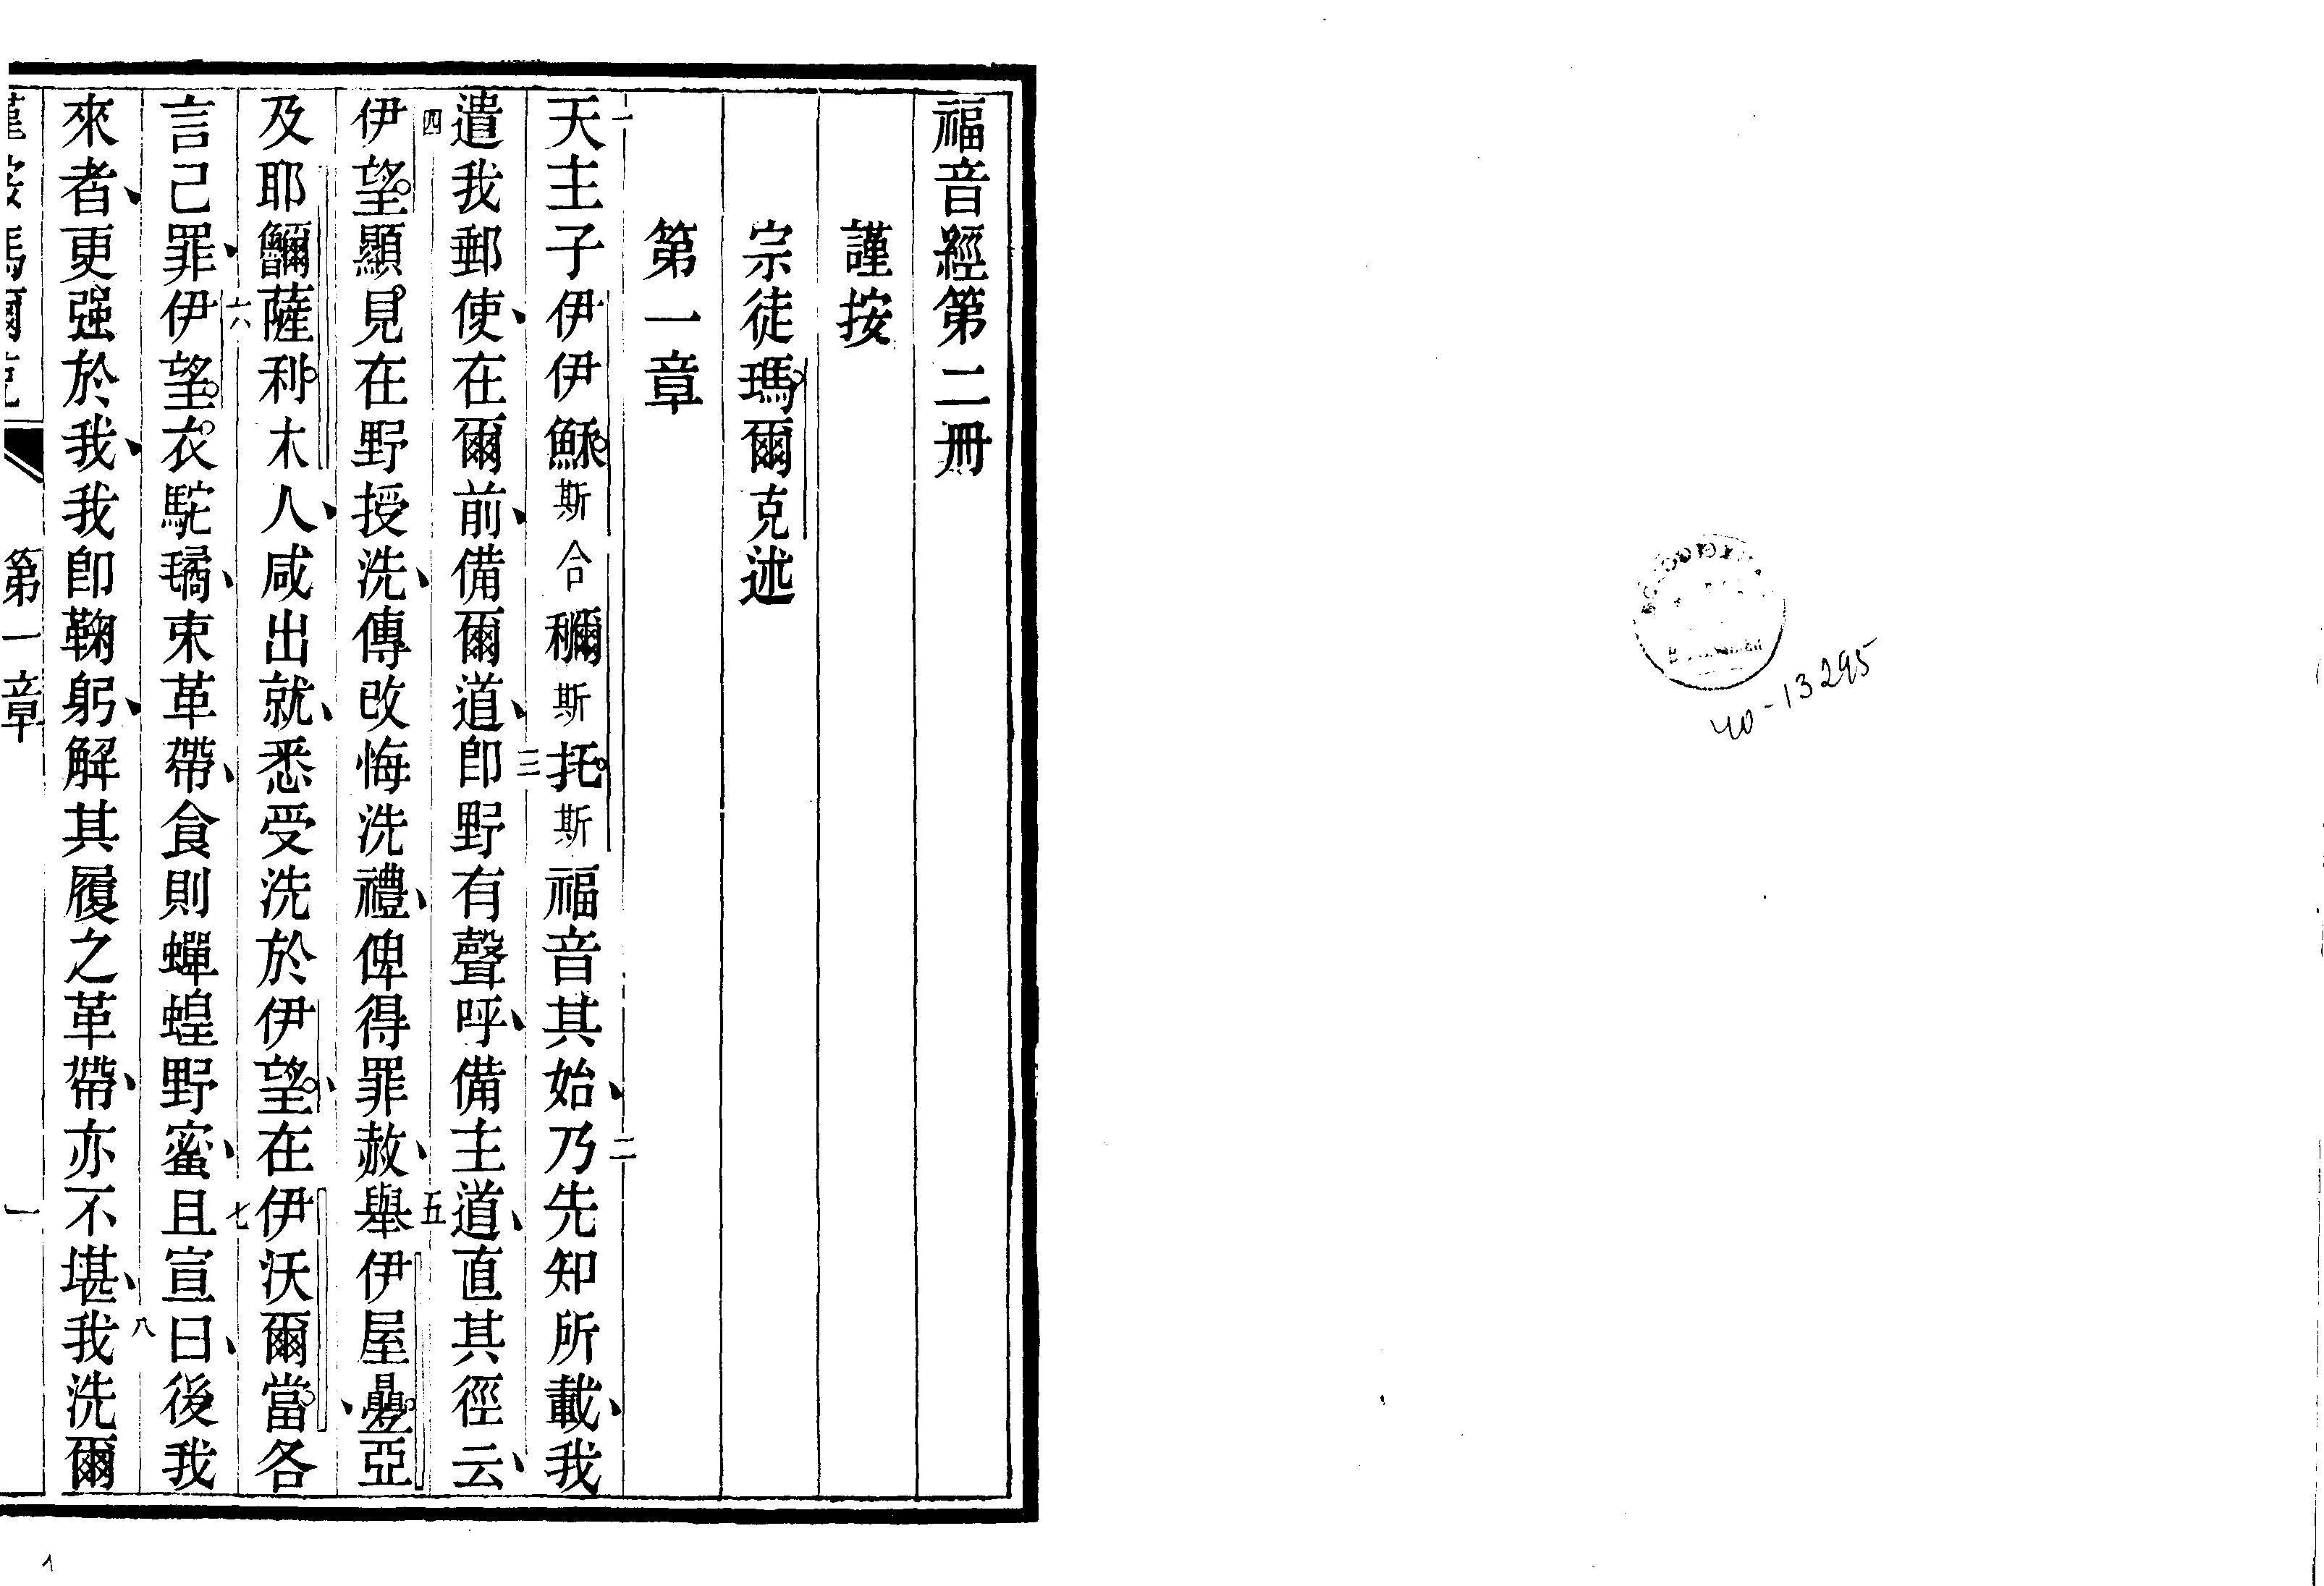 福音經第二冊
謹按
宗徒瑪爾克述
第一章
一天主子伊伊穌斯合穪斯托斯福音其始、二乃先知所載、我
遣我郵使、在爾前、備爾道、三卽野有聲呼、備主道、直其徑云、
四伊望顯見在野授洗、傳改悔洗禮、俾得罪赦、五舉伊屋疊亞、
及耶薩利木人、咸出就、悉受洗於伊望、在伊沃爾當各
言己罪、六伊望衣駝、束革帶、食則蟬蝗野蜜、七且宣曰、後我
來者、更强於我、我卽鞠躬、解其履之革帶、亦不堪、八我洗爾
第一章 一
40-13295
1